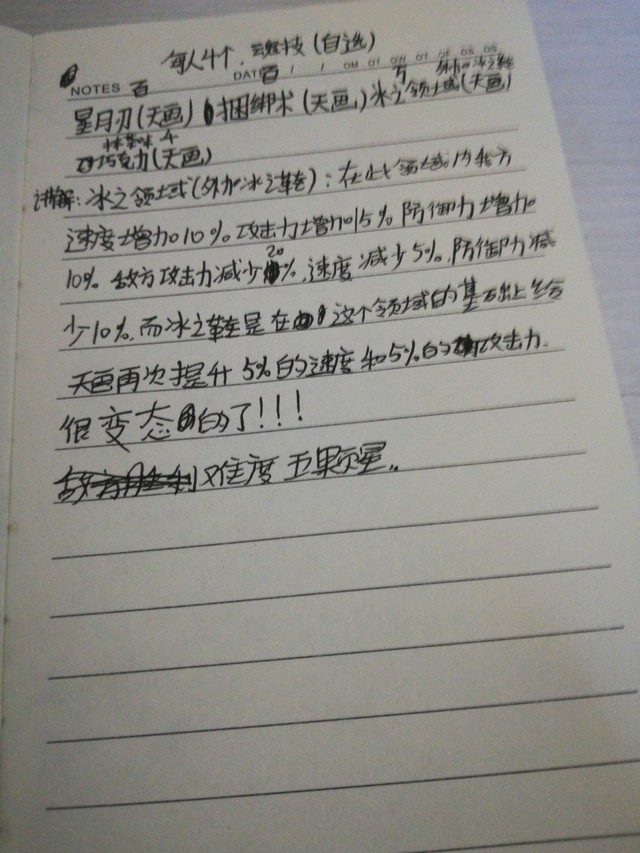 每人4个.魂技(自选)
NOTES 百 DATE 百 / / 万 外加冰之鞋
星月刃(天画) 捆绑术(天画) 冰之领域(天画)
抹茶味 4
巧克力(天画)
讲解:冰之领域(外加冰之鞋):在此领域内我方
速度增加10%.攻击力增加15%防御力增加
10%.敌方攻击力减少20%,速度减少5%.防御力减
少10%.而冰之鞋是在这个领域的基石出上给
天画再次提升5%的速度和5%的攻击力.
很变态的了!!!
难度五颗星。